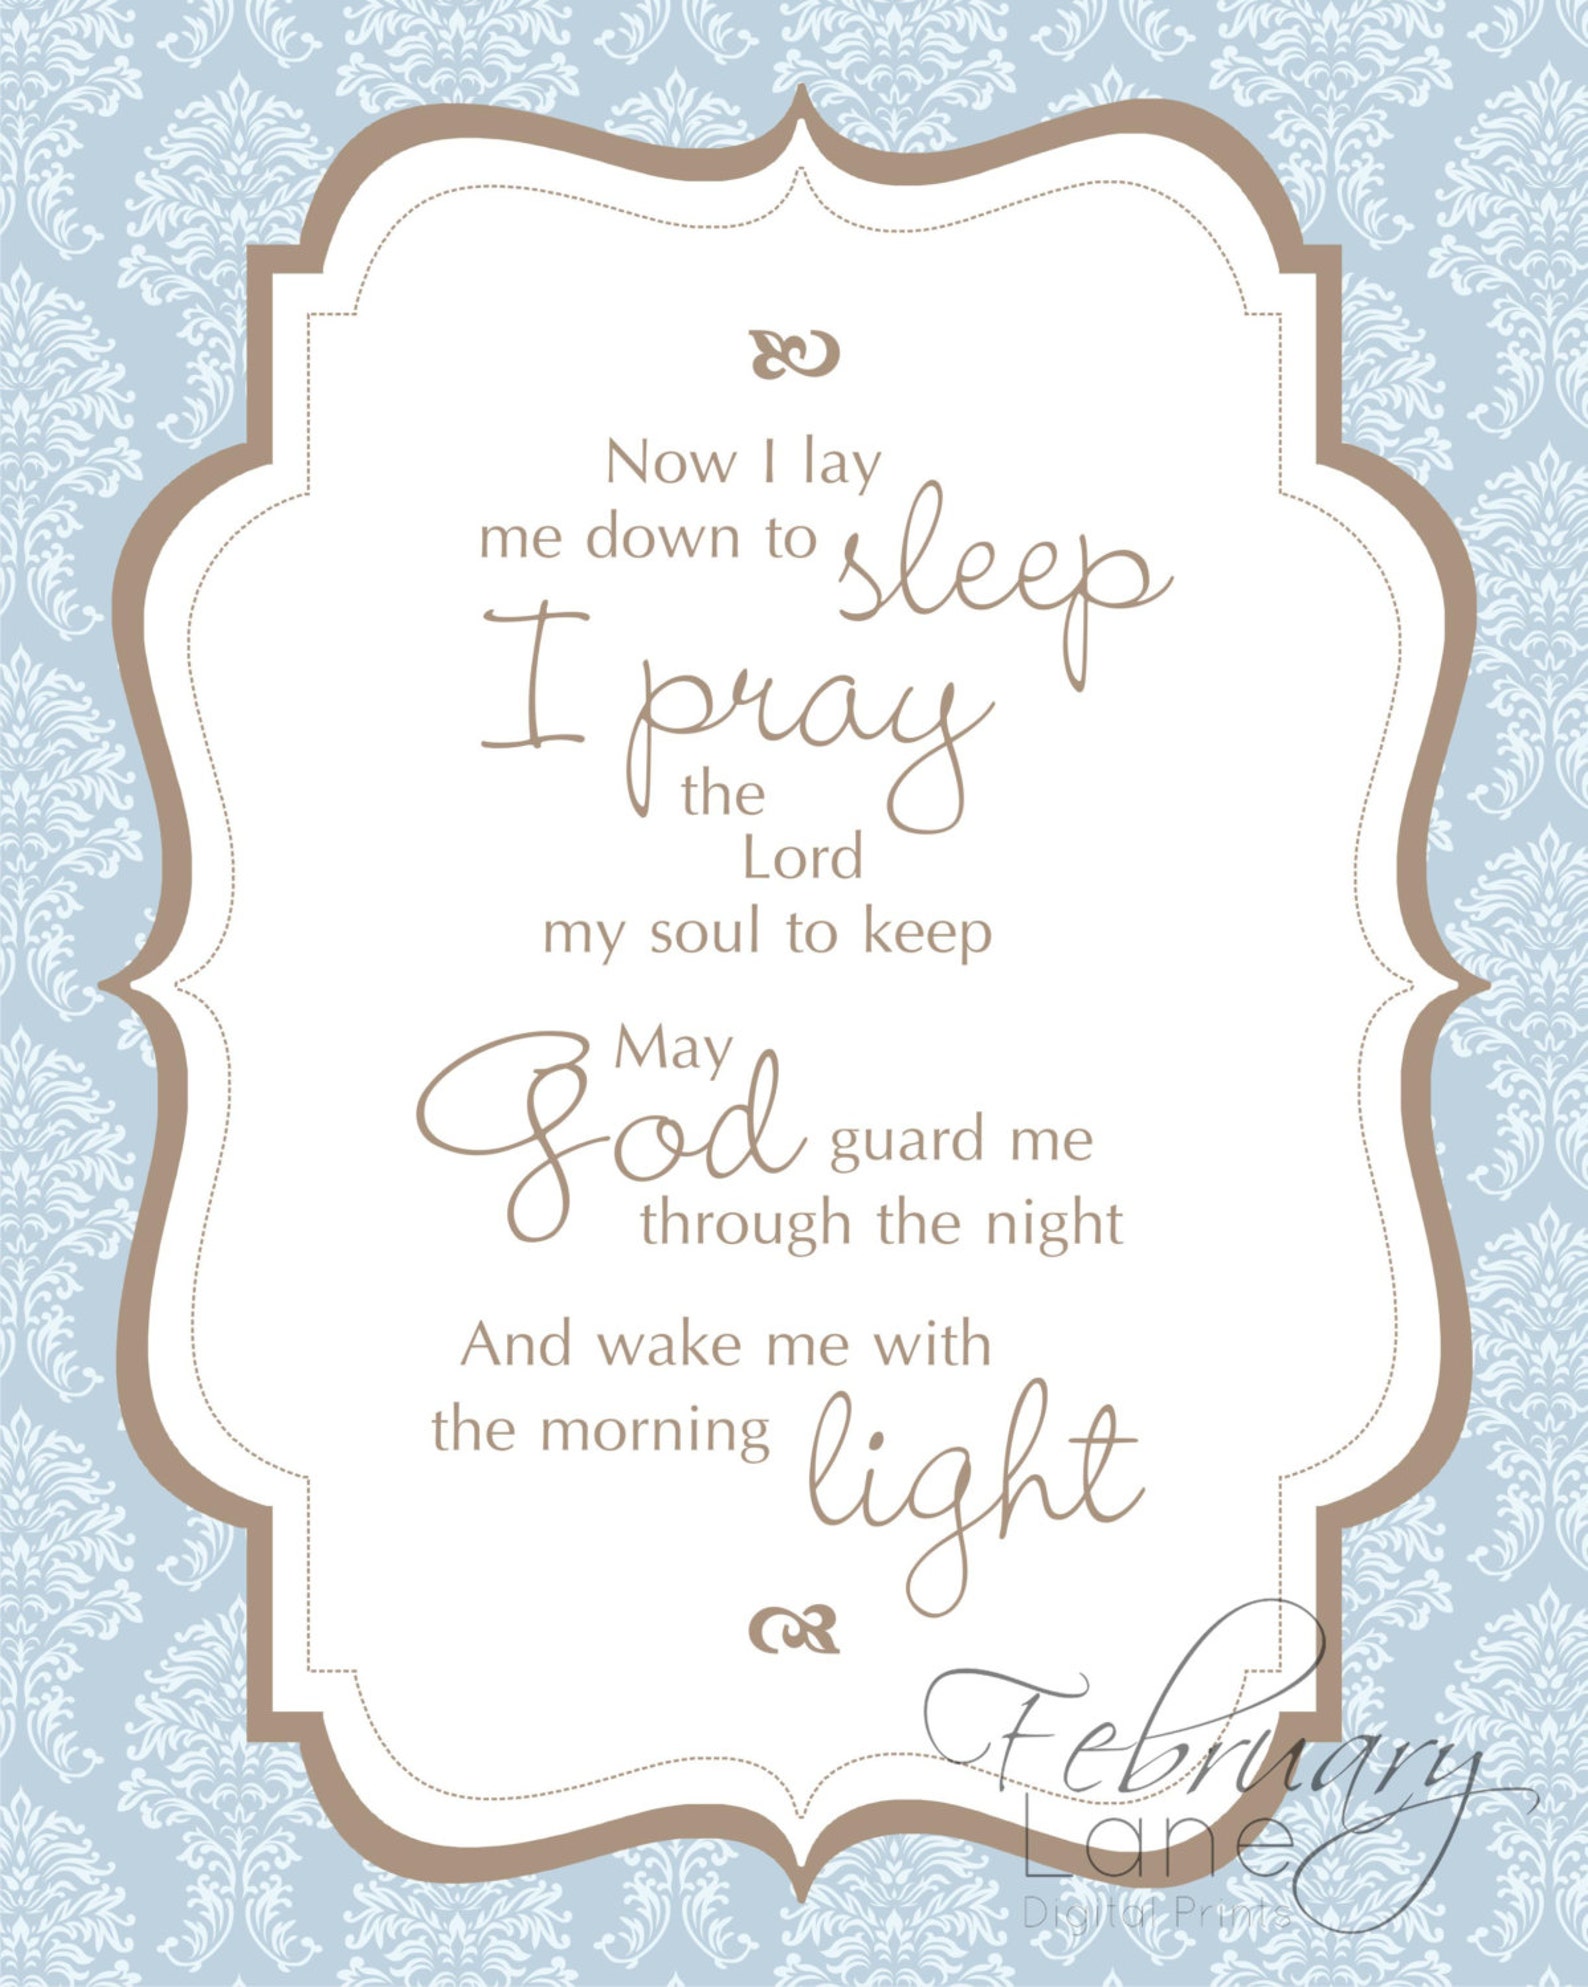 Now I lay
me down to sleep
I pray
the
Lord
my soul to keep
May
God guard me
through the night
And wake me with
the morning light
February
Lane
Digital Prints